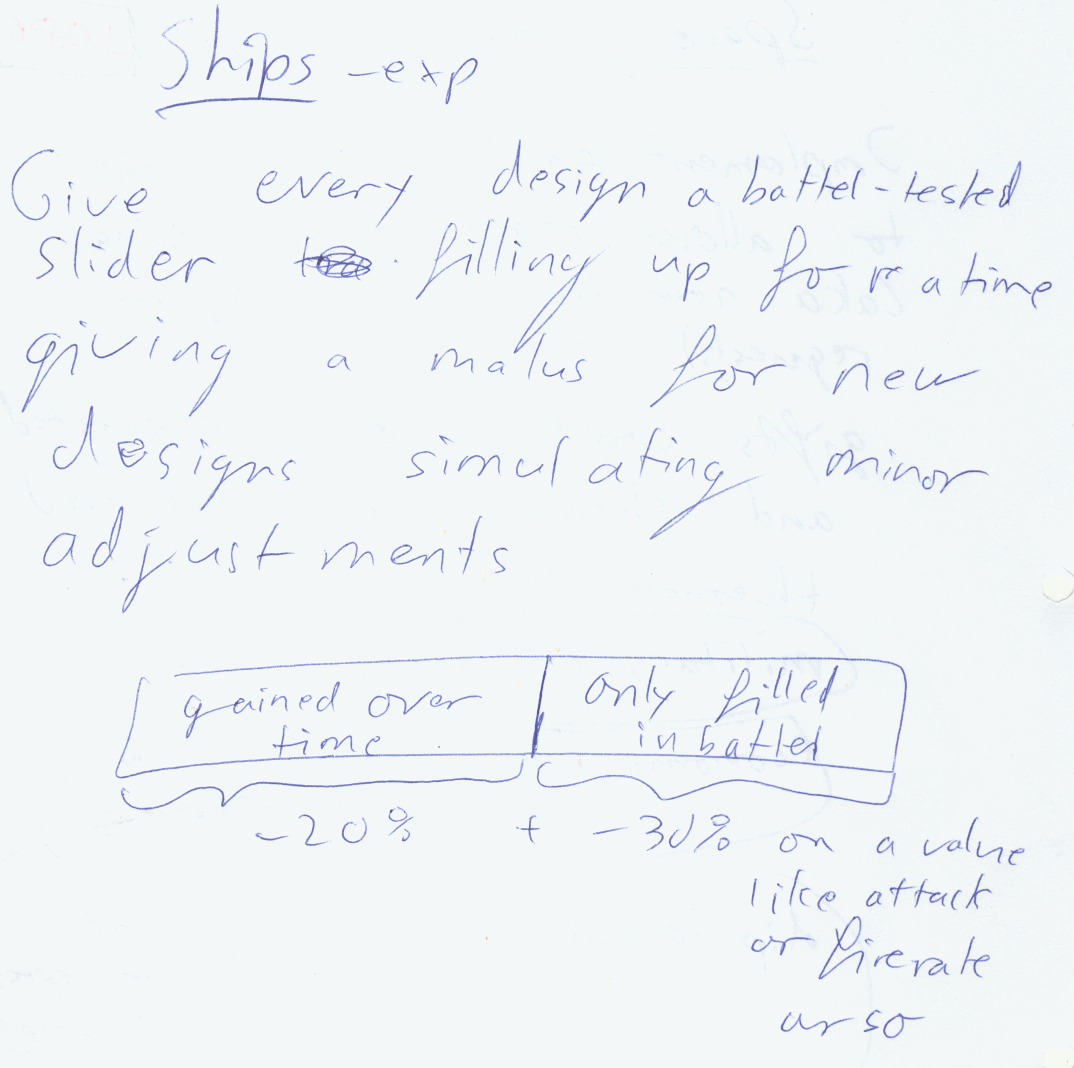 Ships - exp
Give every design a battel-tested
slider filling up for a time
giving a malus for new
designs simulating minor
adjustments
gained over
time
only filled
in battel
-20% + -30% on a value
like attack
or firerate
or so